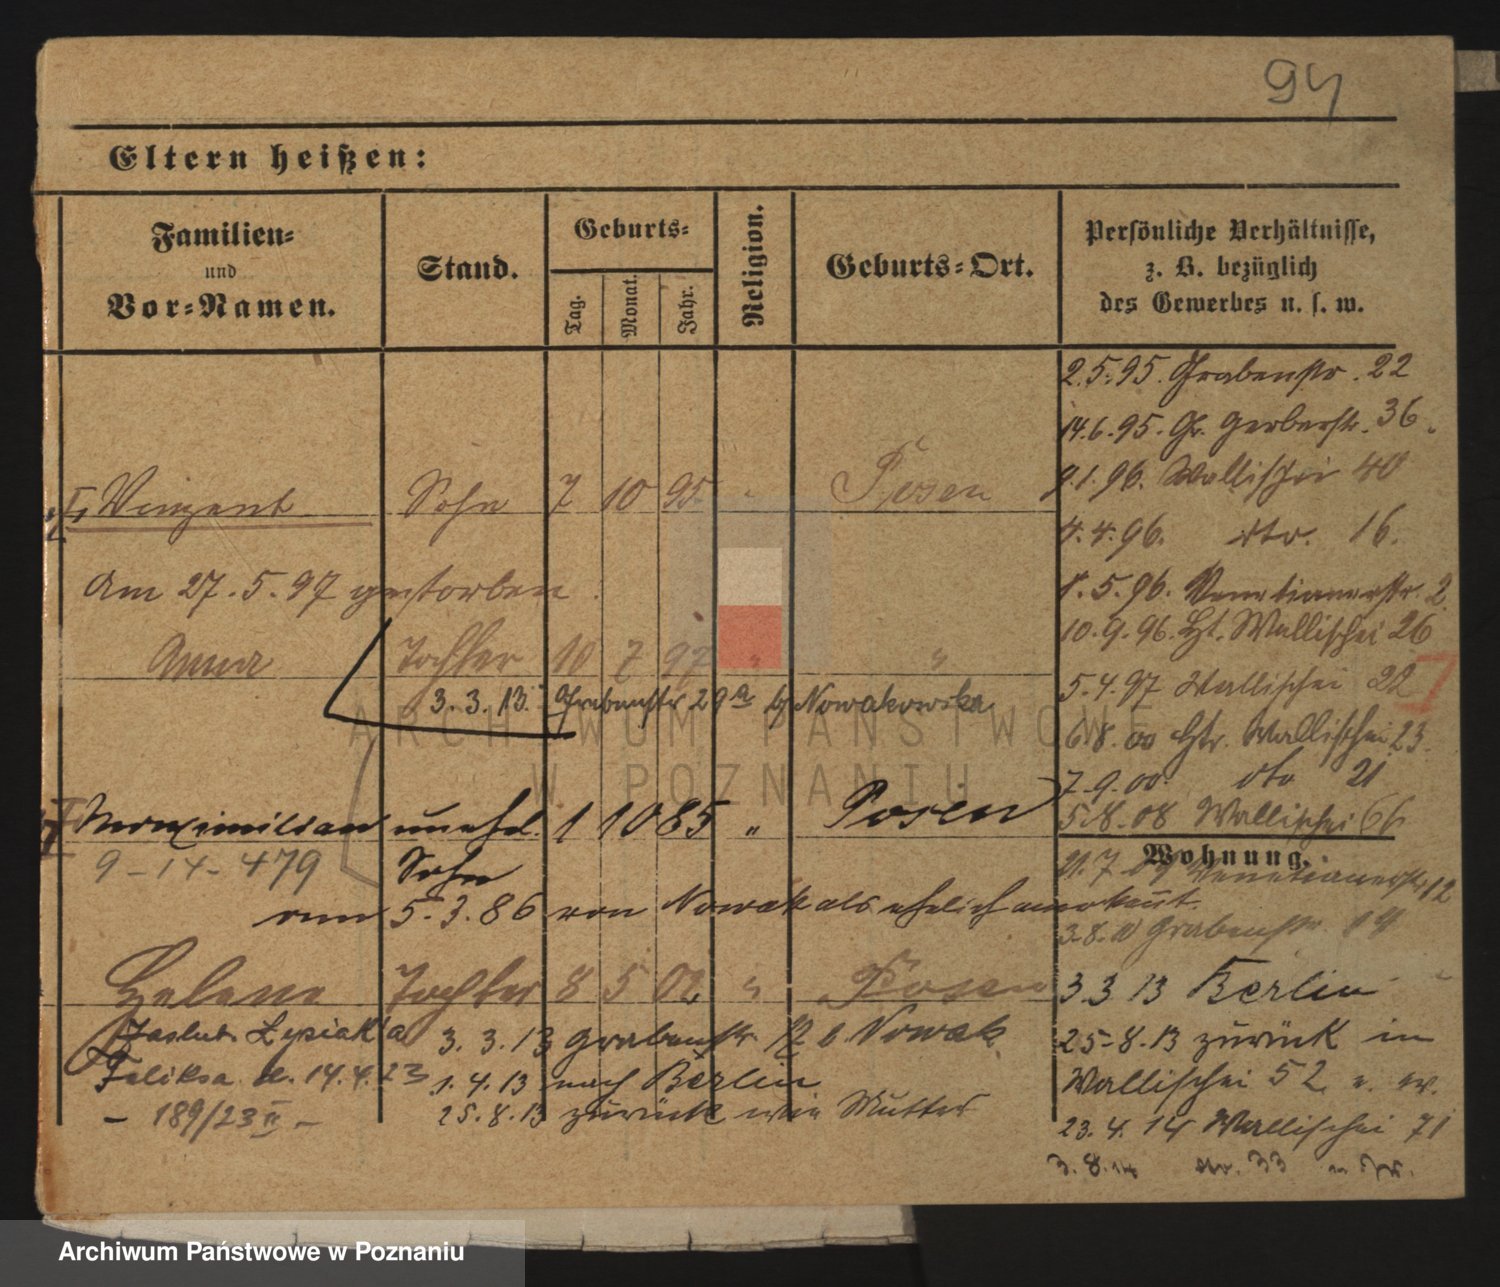 94
Eltern heißen:
Familien-
und
Vor-Namen.
Stand.
Geburts-
Tag.
Monat.
Jahr.
Religion.
Geburts-Ort.
Persönliche Verhältnisse,
z. B. bezüglich
des Gewerbes u. s. w.
2.5.95. Grabenstr. 22
14.6.95. Gr. Gerberstr. 36.
9.1.96. Wallischei 40
Vinzent Sohn 7 10 95 " Posen
4.4.96. dto. 16.
am 27.5.97 gestorben.
1.5.96. Venetianerstr. 2.
10.9.96. Ht. Wallischei 26
Anna Tochter 10 7 97 " "
5.4.97 Wallischei 22
3.3.13. Grabenstr 29a b/ Nowakowska
6.8.00 Htr. Wallischei 23.
7.9.00. dto 21
Maximilian unehel. 1 10 85 " Posen
5.8.08 Wallischei 66
Wohnung.
9-14-479 Sohn
21.7.09 Venetianerstr 12
am 5.3.86 von Nowak als ehelich anerkannt.
3.8.11 Grabenstr 14
Helene Tochter 8 5 02 " Posen
3.3.13 Berlin
zaslub. Łysiaka
3.3.13 Grabenstr 12 b Nowak
25.8.13 zurück in
Feliksa d. 14.4.23
1.4.13 nach Berlin
Wallischei 52
- 189/23 II -
25.8.13 zurück wie Mutter
23.4.14 Wallischei 71
3.8.14 33
ARCHIWUM PAŃSTWOWE
W POZNANIU
Archiwum Państwowe w Poznaniu